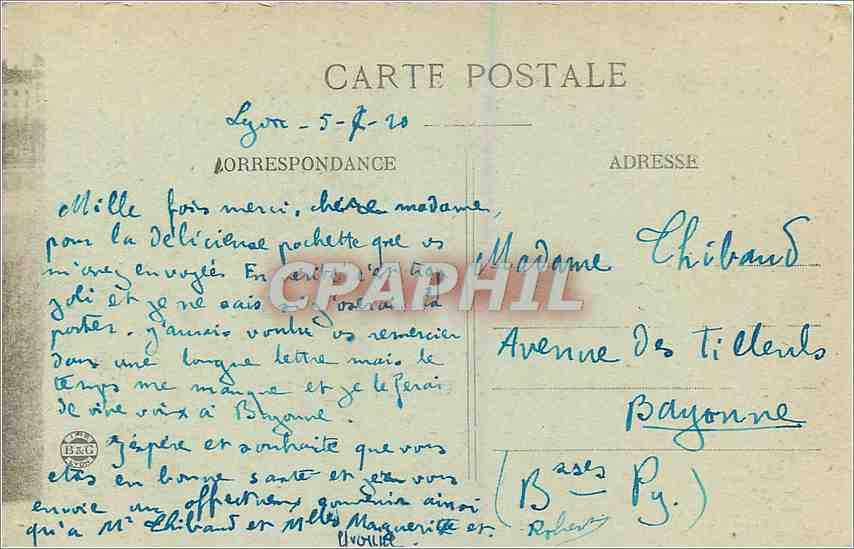 CARTE POSTALE
Lyon - 5-7-20
CORRESPONDANCE
ADRESSE
Mille fois merci, chère madame,
pour la délicieuse pochette que vs
m'avez envoyée En c'est trop
joli et je ne sais si j'oserai la
porter. j'aurais voulu vs remercier
dans une longue lettre mais le
temps me manque et je le ferai
de vive voix à Bayonne.
J'espère et souhaite que vous
etes en bonne santé et vous
envoie un affectueux souvenir ainsi
qu'à Mr Thibaud et Mlles Marguerite et
Yvonne.
Madame Thibaud
Avenue des Tilleuls
Bayonne
(Bases Py.)
Robert
B&G
CPAPHIL